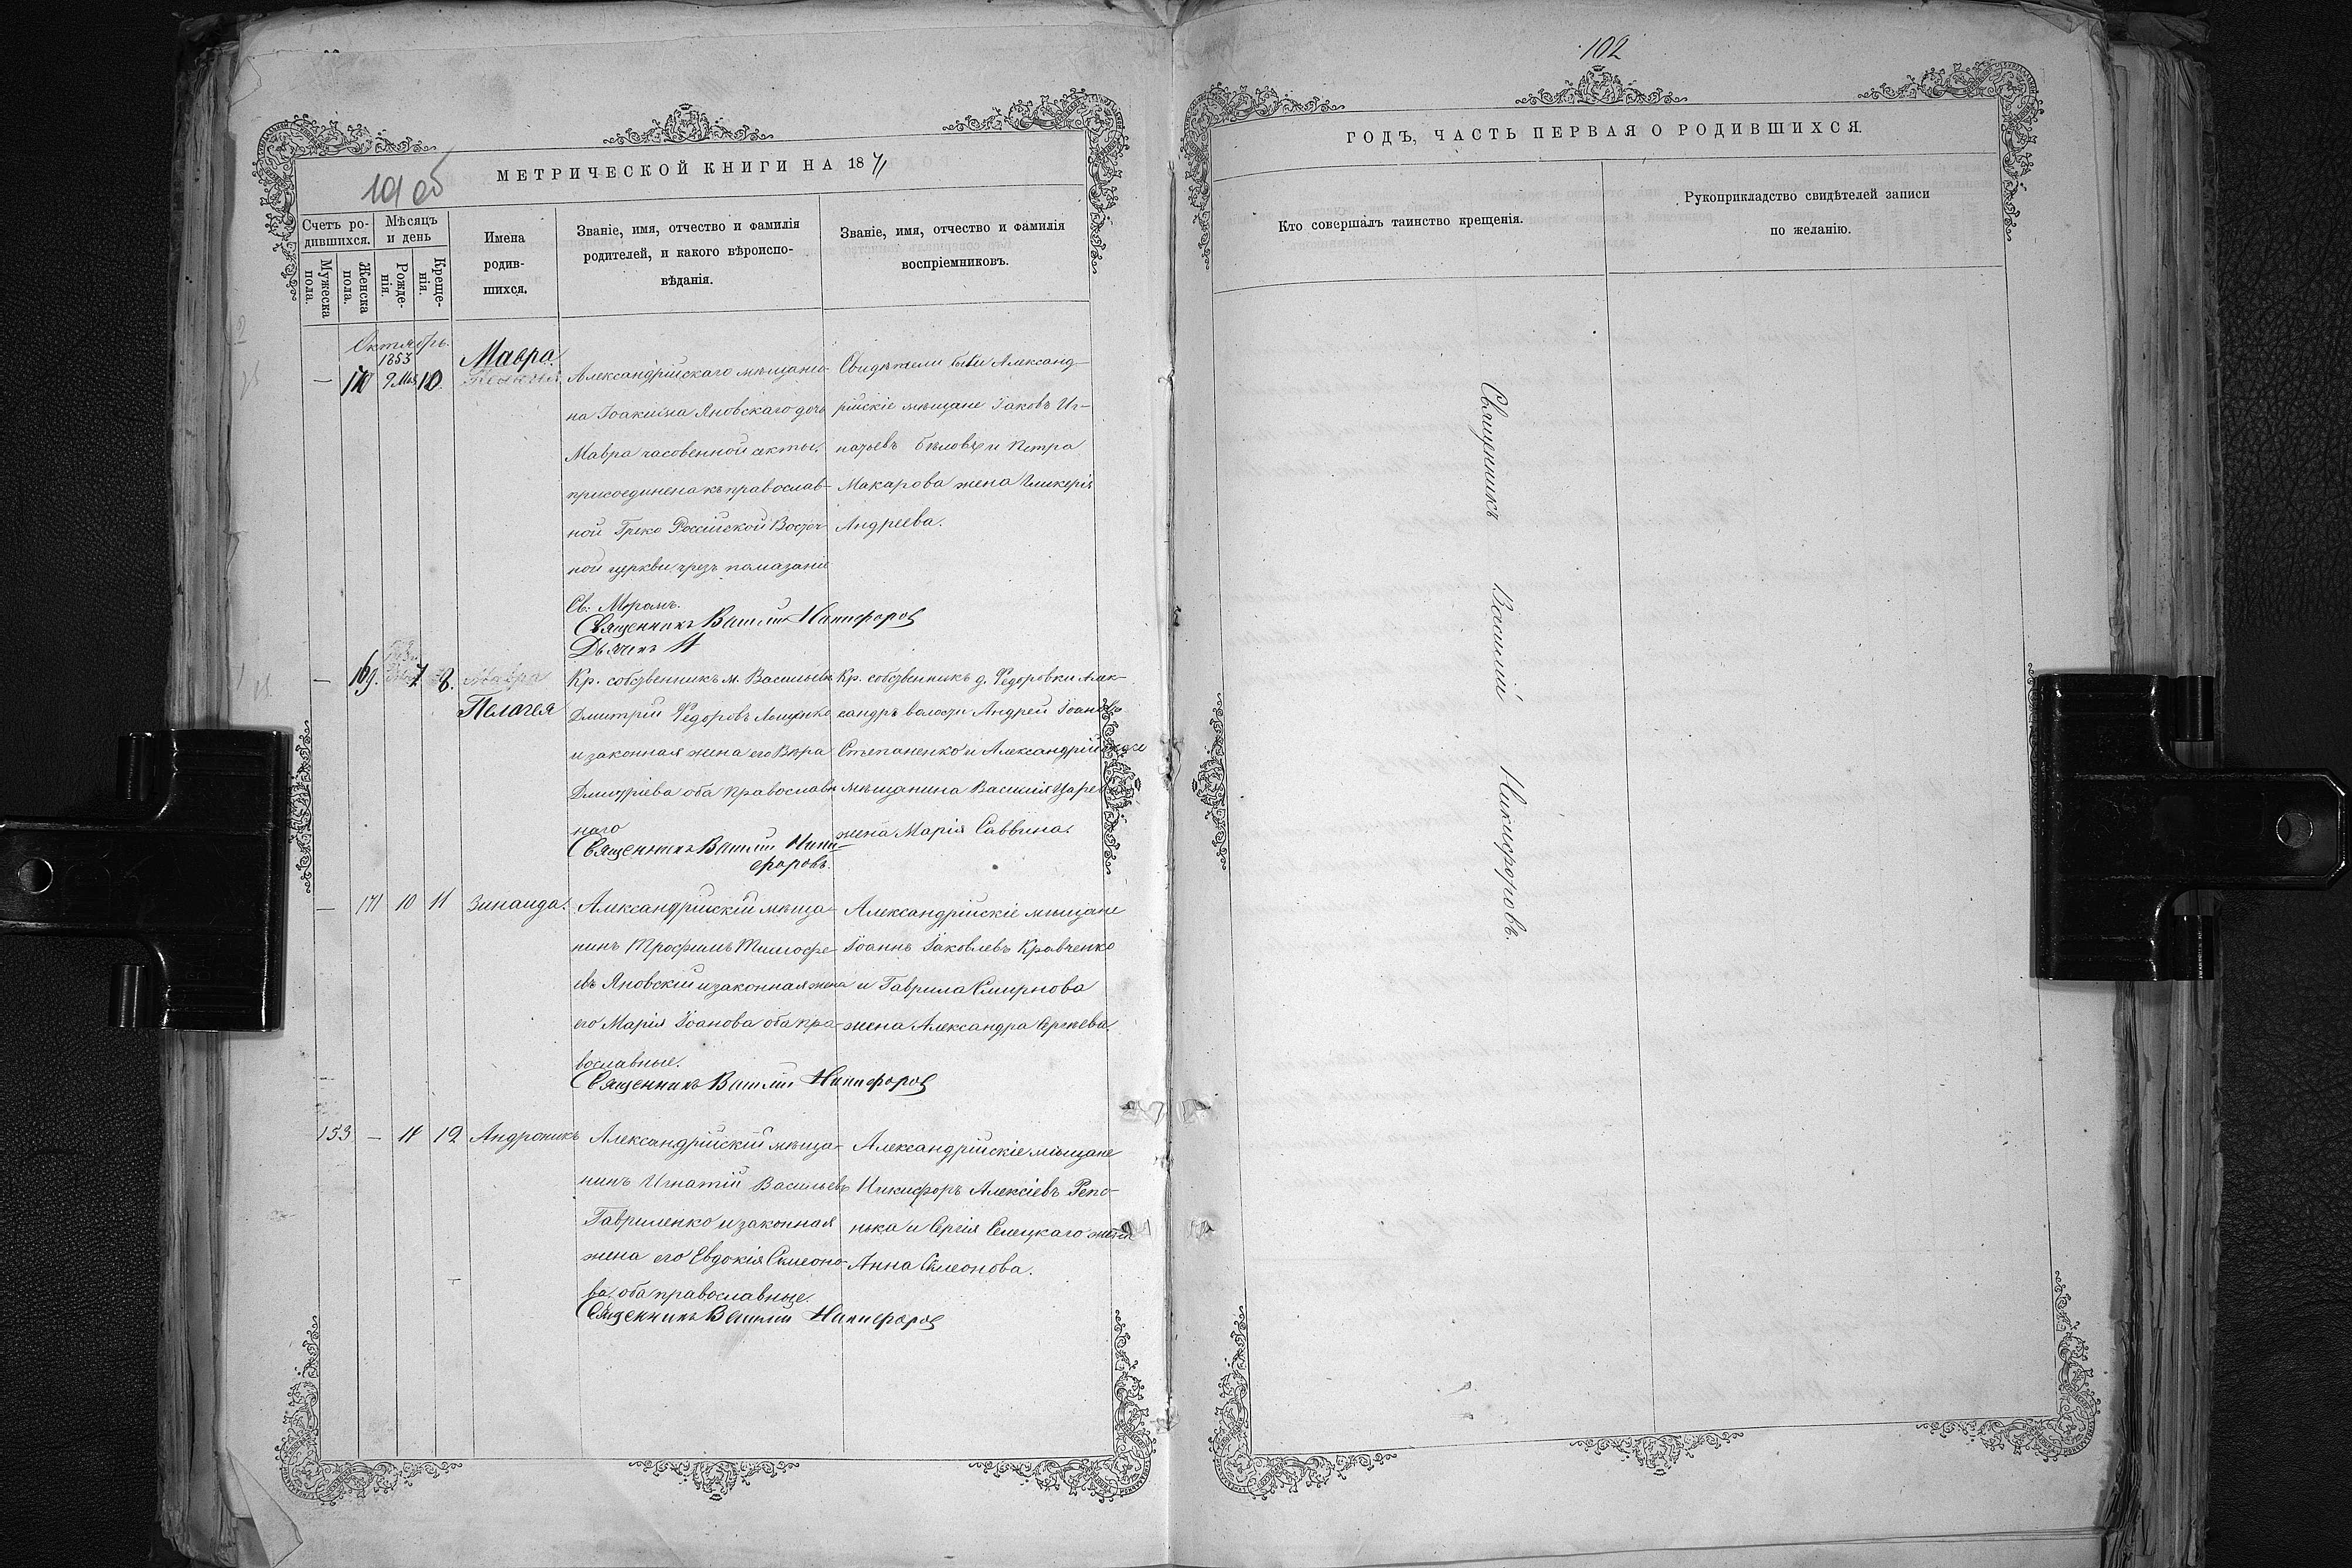 101 об
МЕТРИЧЕСКОЙ КНИГИ НА 1871
Счетъ ро-
дившихся.
Мужеска
пола.
Женска
пола.
Мѣсяцъ
и день
Рожде-
нія.
Креще-
нія.
Имена
родив-
шихся.
Званіе, имя, отчество и фамилія
родителей, и какого вѣроиспо-
вѣданія.
Званіе, имя, отчество и фамилія
воспріемниковъ.
Октябрь.
1853
— 170 9 Мая 10. Мавра
Александрійскаго мѣщани-
на Іоакима Яновскаго дочь
Мавра часовенной секты,
присоединена къ православ-
ной Греко Россійской Восточ-
ной церкви, чрезъ помазаніе
Св: Мѵромъ.
Священникъ Василій Никифоров
Дьячекъ
Свидѣтели были Александ-
рійскіе мѣщане Іаковъ Иг-
натьевъ Бѣловъ и Петра
Макарова жена Гликерія
Андреева.
— 169. 7 8. Мавра
Пелагея
Кр. собственникъ м. Васильевк
Дмитрій Ѳедоровъ
и законная жена его Вѣра
Дмитріева оба православ
наго
Священникъ Василій Ники-
форовъ.
Кр. собственникъ д. Федоровки Алек-
сандр. волости Андрей Іоановъ
Степаненко и Александрійскаго
мѣщанина Василія
жена Марія Саввина.
— 171 10 11 Зинаида.
Александрійскій мѣща-
нинъ Трофимъ Тимофе-
евъ Яновскій и законная жена
его Марія Іоанова оба пра-
вославные.
Священникъ Василій Никифоров
Александрійскіе мѣщане
Іоаннъ Іаковлевъ Кравченко
и Гаврила Смирнова
жена Александра Сергѣева.
153 — 11 12 Андроникъ
Александрійскій мѣща-
нинъ Игнатій Васильевъ
Гавриленко и законная
жена его Евдокія Симеоно-
ва, оба православные.
Священникъ Василій Никифоров
Александрійскіе мѣщане
Никифоръ Алексіевъ Репо-
нька и Сергія Селецкаго жена
Анна Симеонова.
102
ГОДЪ, ЧАСТЬ ПЕРВАЯ О РОДИВШИХСЯ.
Кто совершалъ таинство крещенія.
Рукоприкладство свидѣтелей записи
по желанію.
Священникъ Василій Никифоровъ.